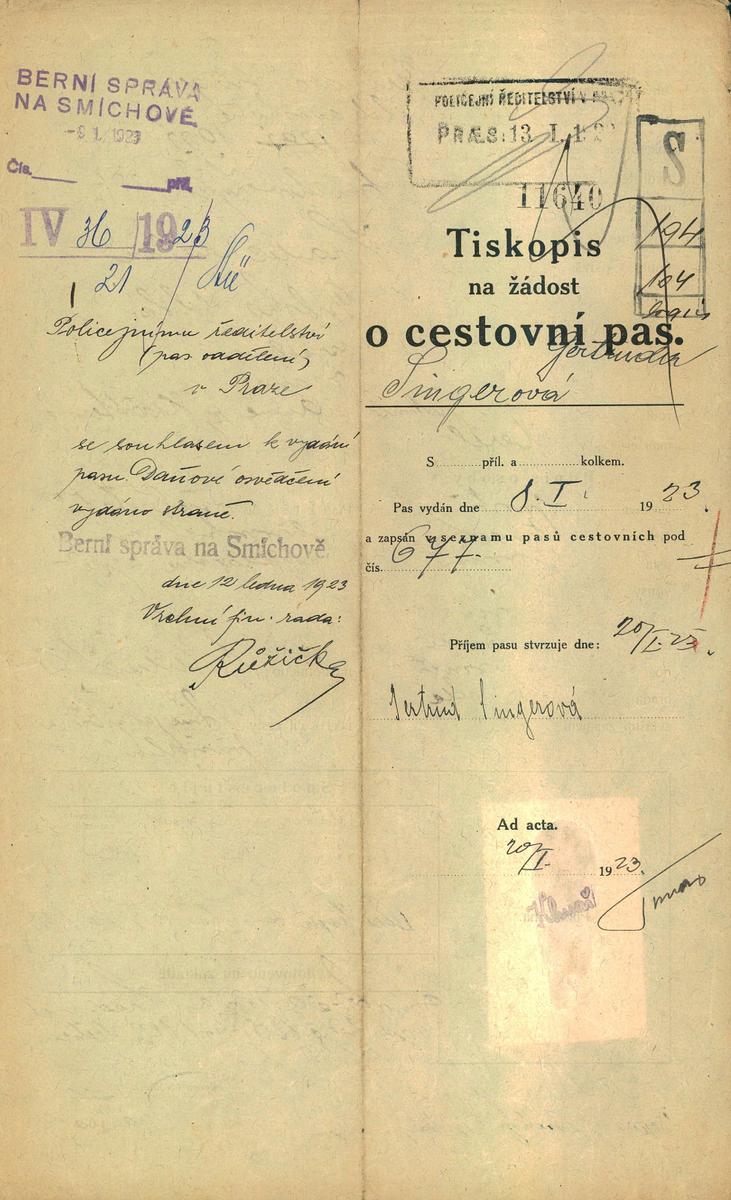 BERNÍ SPRÁVA
NA SMÍCHOVĚ
-9 1. 1923
Čís. příl.
IV 36 1923
21
Policejnímu ředitelství
(pas oddělení)
v Praze
se souhlasem k vydání
pasu. Daňové osvědčení
vydáno straně.
Berní správa na Smíchově
dne 12 ledna 1923
Vrchní fin. rada:
Růžička
POLICEJNÍ ŘEDITELSTVÍ V PRAZE
PRÆS: 13. I. 192
11640
S
194
104
Tiskopis
na žádost
o cestovní pas.
Gertruda
Singerová
S příl. a kolkem.
Pas vydán dne 8. I. 1923.
a zapsán v seznamu pasů cestovních pod
čís. 677.
Příjem pasu stvrzuje dne: 20/I. 23.
Gertrud Singerová
Ad acta.
20/I. 1923.